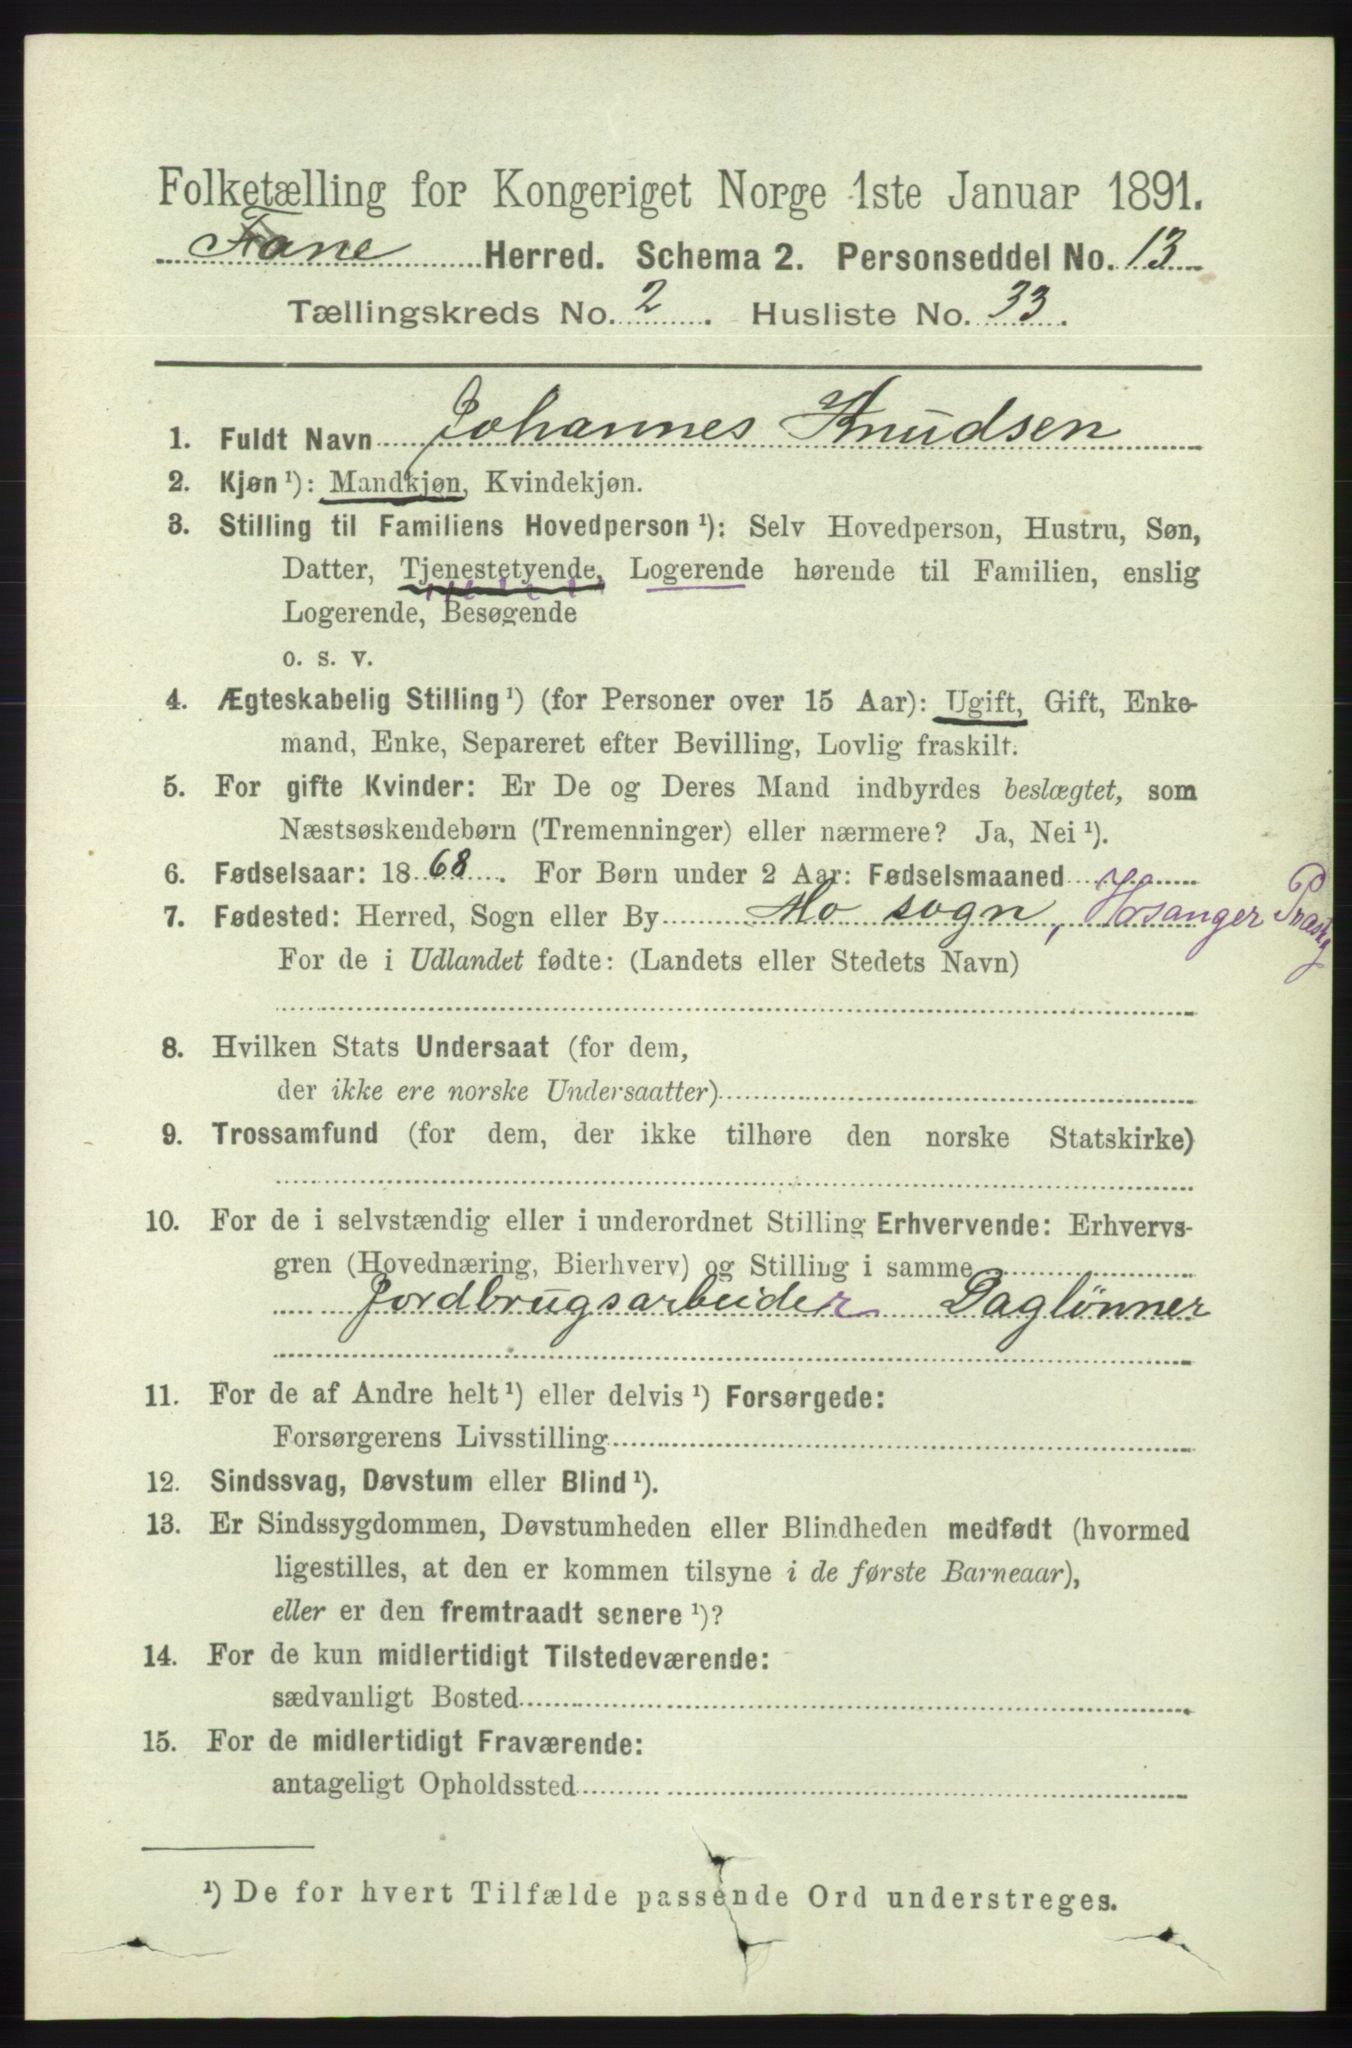 Folketælling for Kongeriget Norge 1ste Januar 1891.
Fane Herred. Schema 2. Personseddel No. 13
Tællingskreds No. 2. Husliste No. 33.
1. Fuldt Navn Johannes Knudsen
2. Kjøn ¹): Mandkjøn, Kvindekjøn.
3. Stilling til Familiens Hovedperson ¹): Selv Hovedperson, Hustru, Søn,
Datter, Tjenestetyende, Logerende hørende til Familien, enslig
Logerende, Besøgende
o. s. v.
4. Ægteskabelig Stilling ¹) (for Personer over 15 Aar): Ugift, Gift, Enke-
mand, Enke, Separeret efter Bevilling, Lovlig fraskilt.
5. For gifte Kvinder: Er De og Deres Mand indbyrdes beslægtet, som
Næstsøskendebørn (Tremenninger) eller nærmere? Ja, Nei ¹).
6. Fødselsaar: 1868. For Børn under 2 Aar: Fødselsmaaned
7. Fødested: Herred, Sogn eller By Mo sogn, Hosanger Præstg
For de i Udlandet fødte: (Landets eller Stedets Navn)
8. Hvilken Stats Undersaat (for dem,
der ikke ere norske Undersaatter)
9. Trossamfund (for dem, der ikke tilhøre den norske Statskirke)
10. For de i selvstændig eller i underordnet Stilling Erhvervende: Erhvervs-
gren (Hovednæring, Bierhverv) og Stilling i samme
Jordbrugsarbeider Daglønner
11. For de af Andre helt ¹) eller delvis ¹) Forsørgede:
Forsørgerens Livsstilling
12. Sindssvag, Døvstum eller Blind ¹).
13. Er Sindssygdommen, Døvstumheden eller Blindheden medfødt (hvormed
ligestilles, at den er kommen tilsyne i de første Barneaar),
eller er den fremtraadt senere ¹)?
14. For de kun midlertidigt Tilstedeværende:
sædvanligt Bosted
15. For de midlertidigt Fraværende:
antageligt Opholdssted
¹) De for hvert Tilfælde passende Ord understreges.